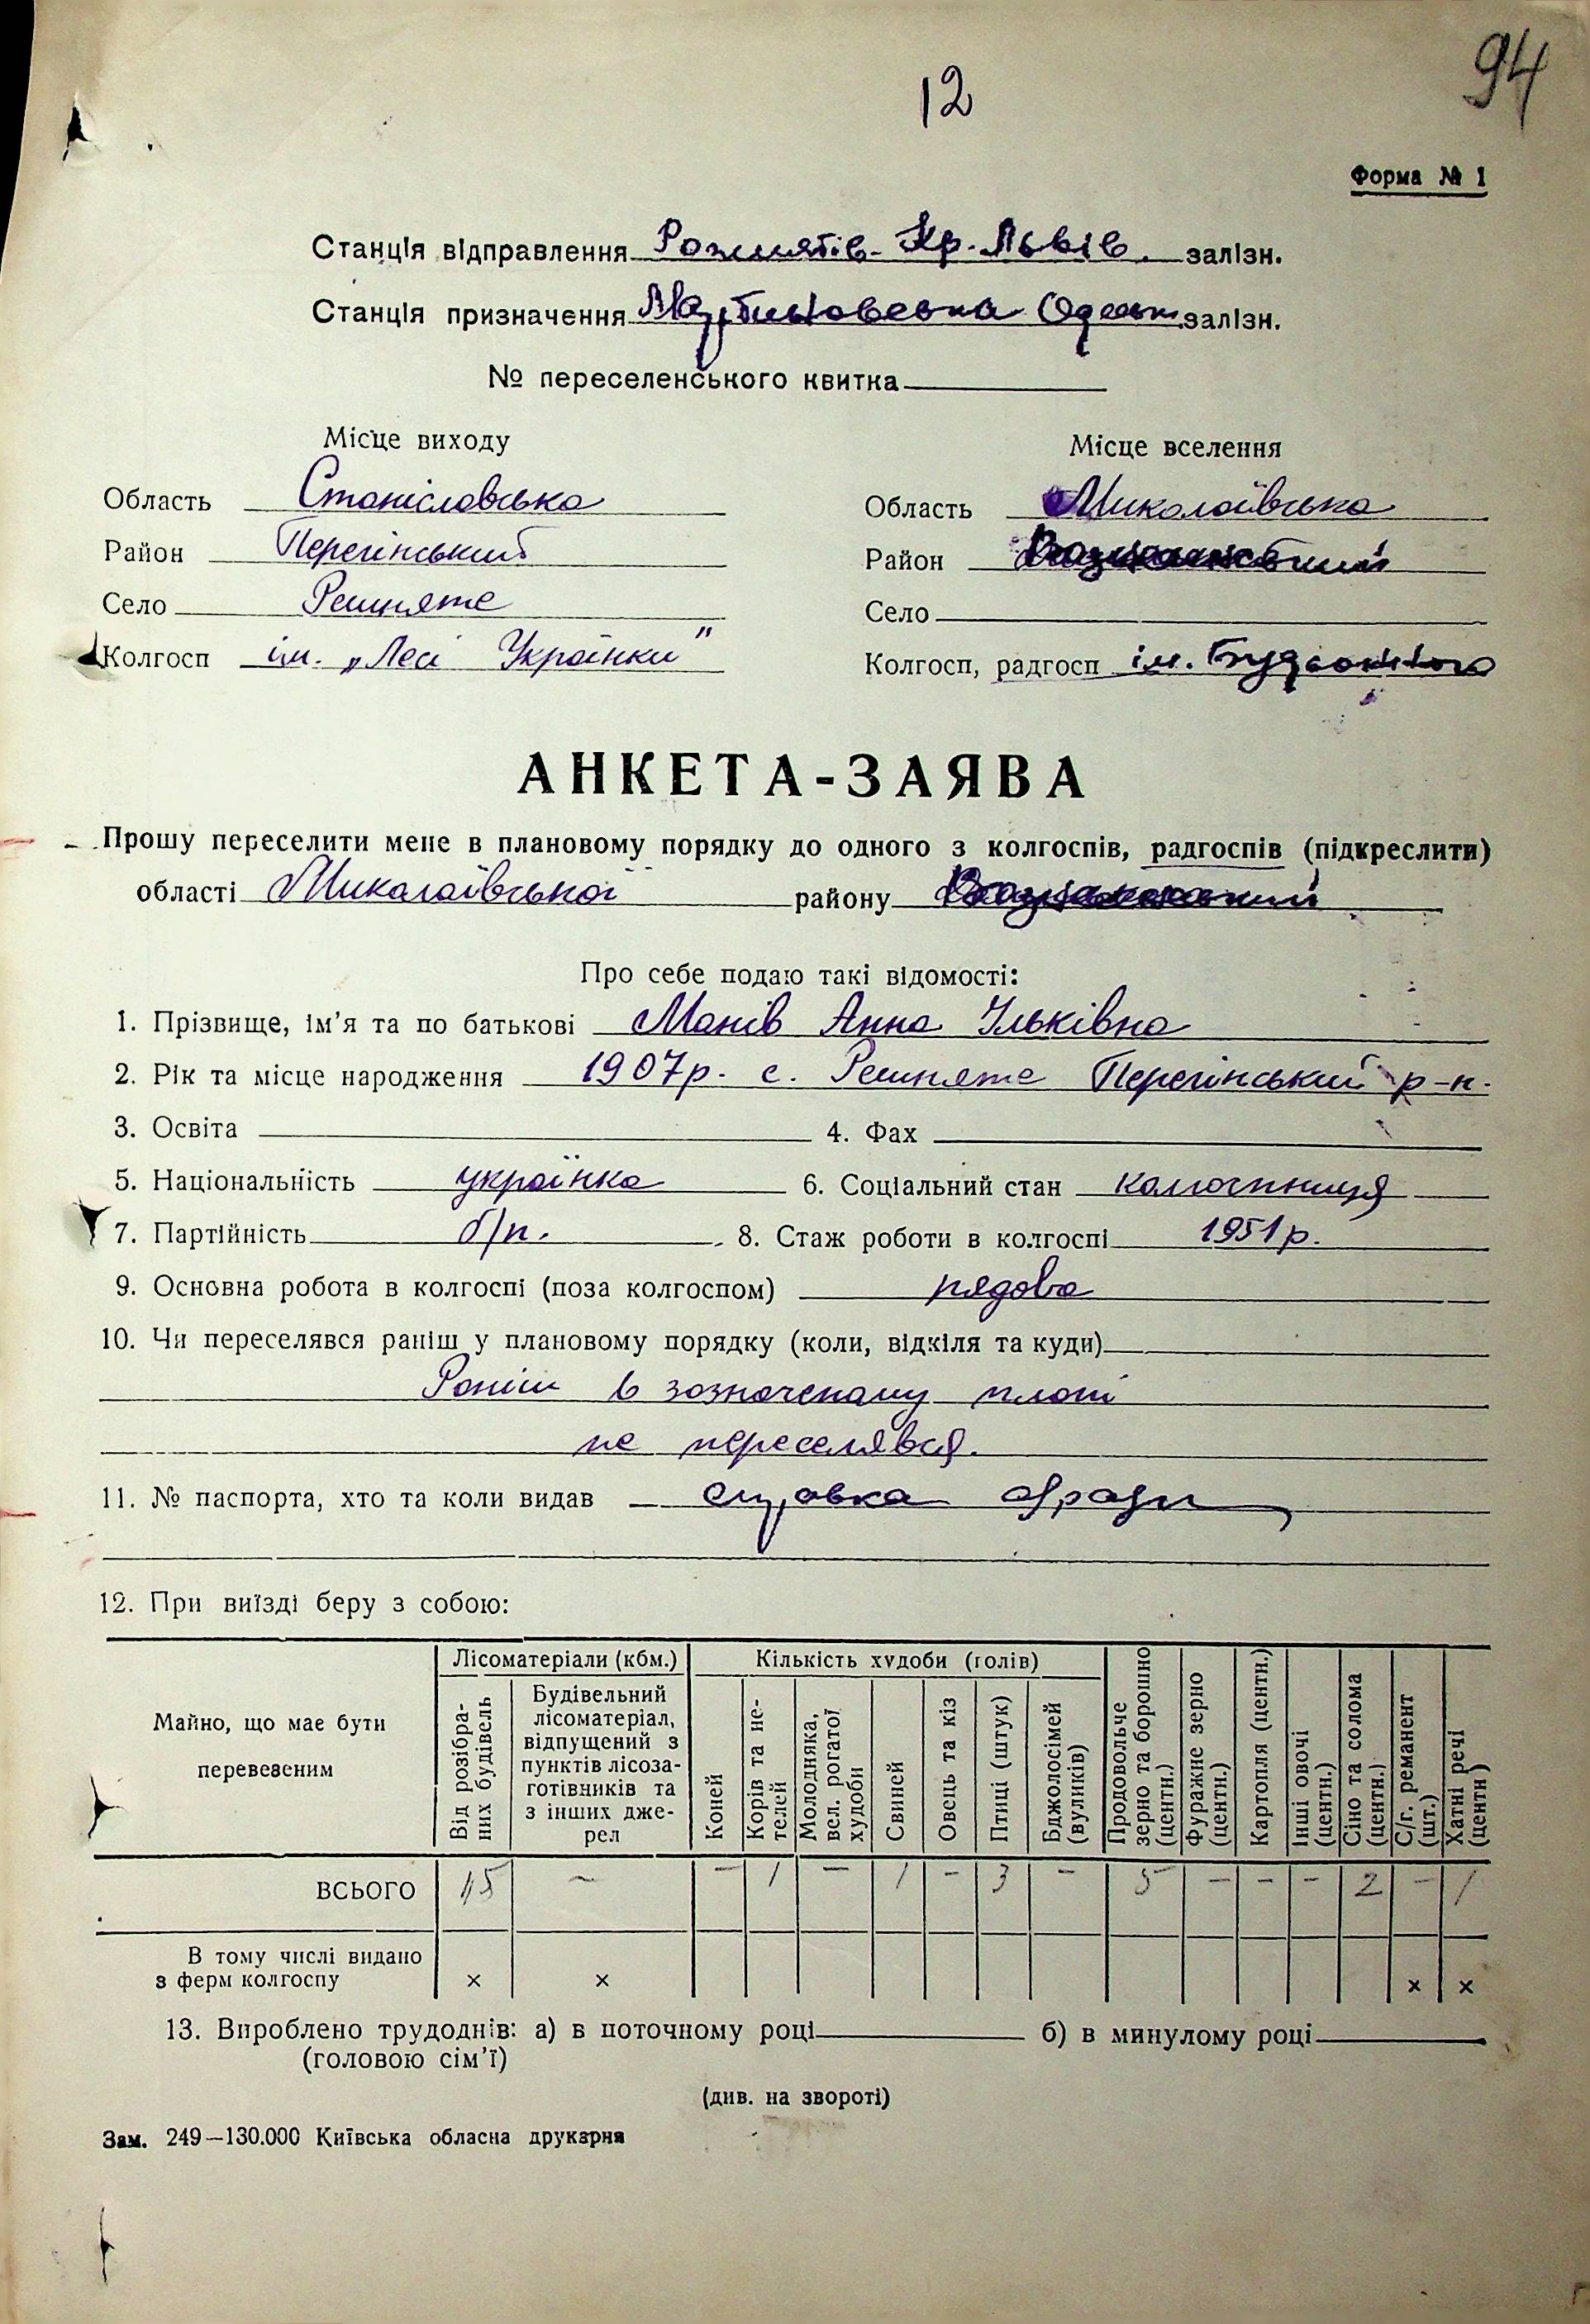 94
12
Форма № 1
Станція відправлення Рожнятів-Кр. Львів. залізн.
Станція призначення Мартиновська Одеськ. залізн.
№ переселенського квитка
Місце виходу Місце вселення
Область Станіславська Область Миколаївська
Район Перегінський Район
Село Ремняте Село
Колгосп ім. „Лесі Українки" Колгосп, радгосп ім. Будьонного
АНКЕТА-ЗАЯВА
Прошу переселити мене в плановому порядку до одного з колгоспів, радгоспів (підкреслити)
області Миколаївської району
Про себе подаю такі відомості:
1. Прізвище, ім'я та по батькові Манів Анна Ільківна
2. Рік та місце народження 1907р. с. Ремняте Перегінський р-н.
3. Освіта 4. Фах
5. Національність українка 6. Соціальний стан колгоспниця
7. Партійність б/п. 8. Стаж роботи в колгоспі 1951р.
9. Основна робота в колгоспі (поза колгоспом) рядова
10. Чи переселявся раніш у плановому порядку (коли, відкіля та куди)
Раніш в зазначеному плані
не переселявся.
11. № паспорта, хто та коли видав справка с/ради
12. При виїзді беру з собою:
Майно, що має бути перевезеним
Лісоматеріали (кбм.) Кількість худоби (голів)
Від розібраних будівель
Будівельний лісоматеріал, відпущений з пунктів лісозаготівників та з інших джерел
Коней
Корів та нетелей
Молодняка, вел. рогатої худоби
Свиней
Овець та кіз
Птиці (штук)
Бджолосімей (вуликів)
Продовольче зерно та борошно (центн.)
Фуражне зерно (центн.)
Картопля (центн.)
Інші овочі (центн.)
Сіно та солома (центн.)
С/г. реманент (шт.)
Хатні речі (центн)
ВСЬОГО 15 – – 1 – 1 – 3 – 5 – – – 2 – 1
В тому числі видано
з ферм колгоспу × × × ×
13. Вироблено трудоднів: а) в поточному році б) в минулому році
(головою сім'ї)
(див. на звороті)
Зам. 249—130.000 Київська обласна друкарня